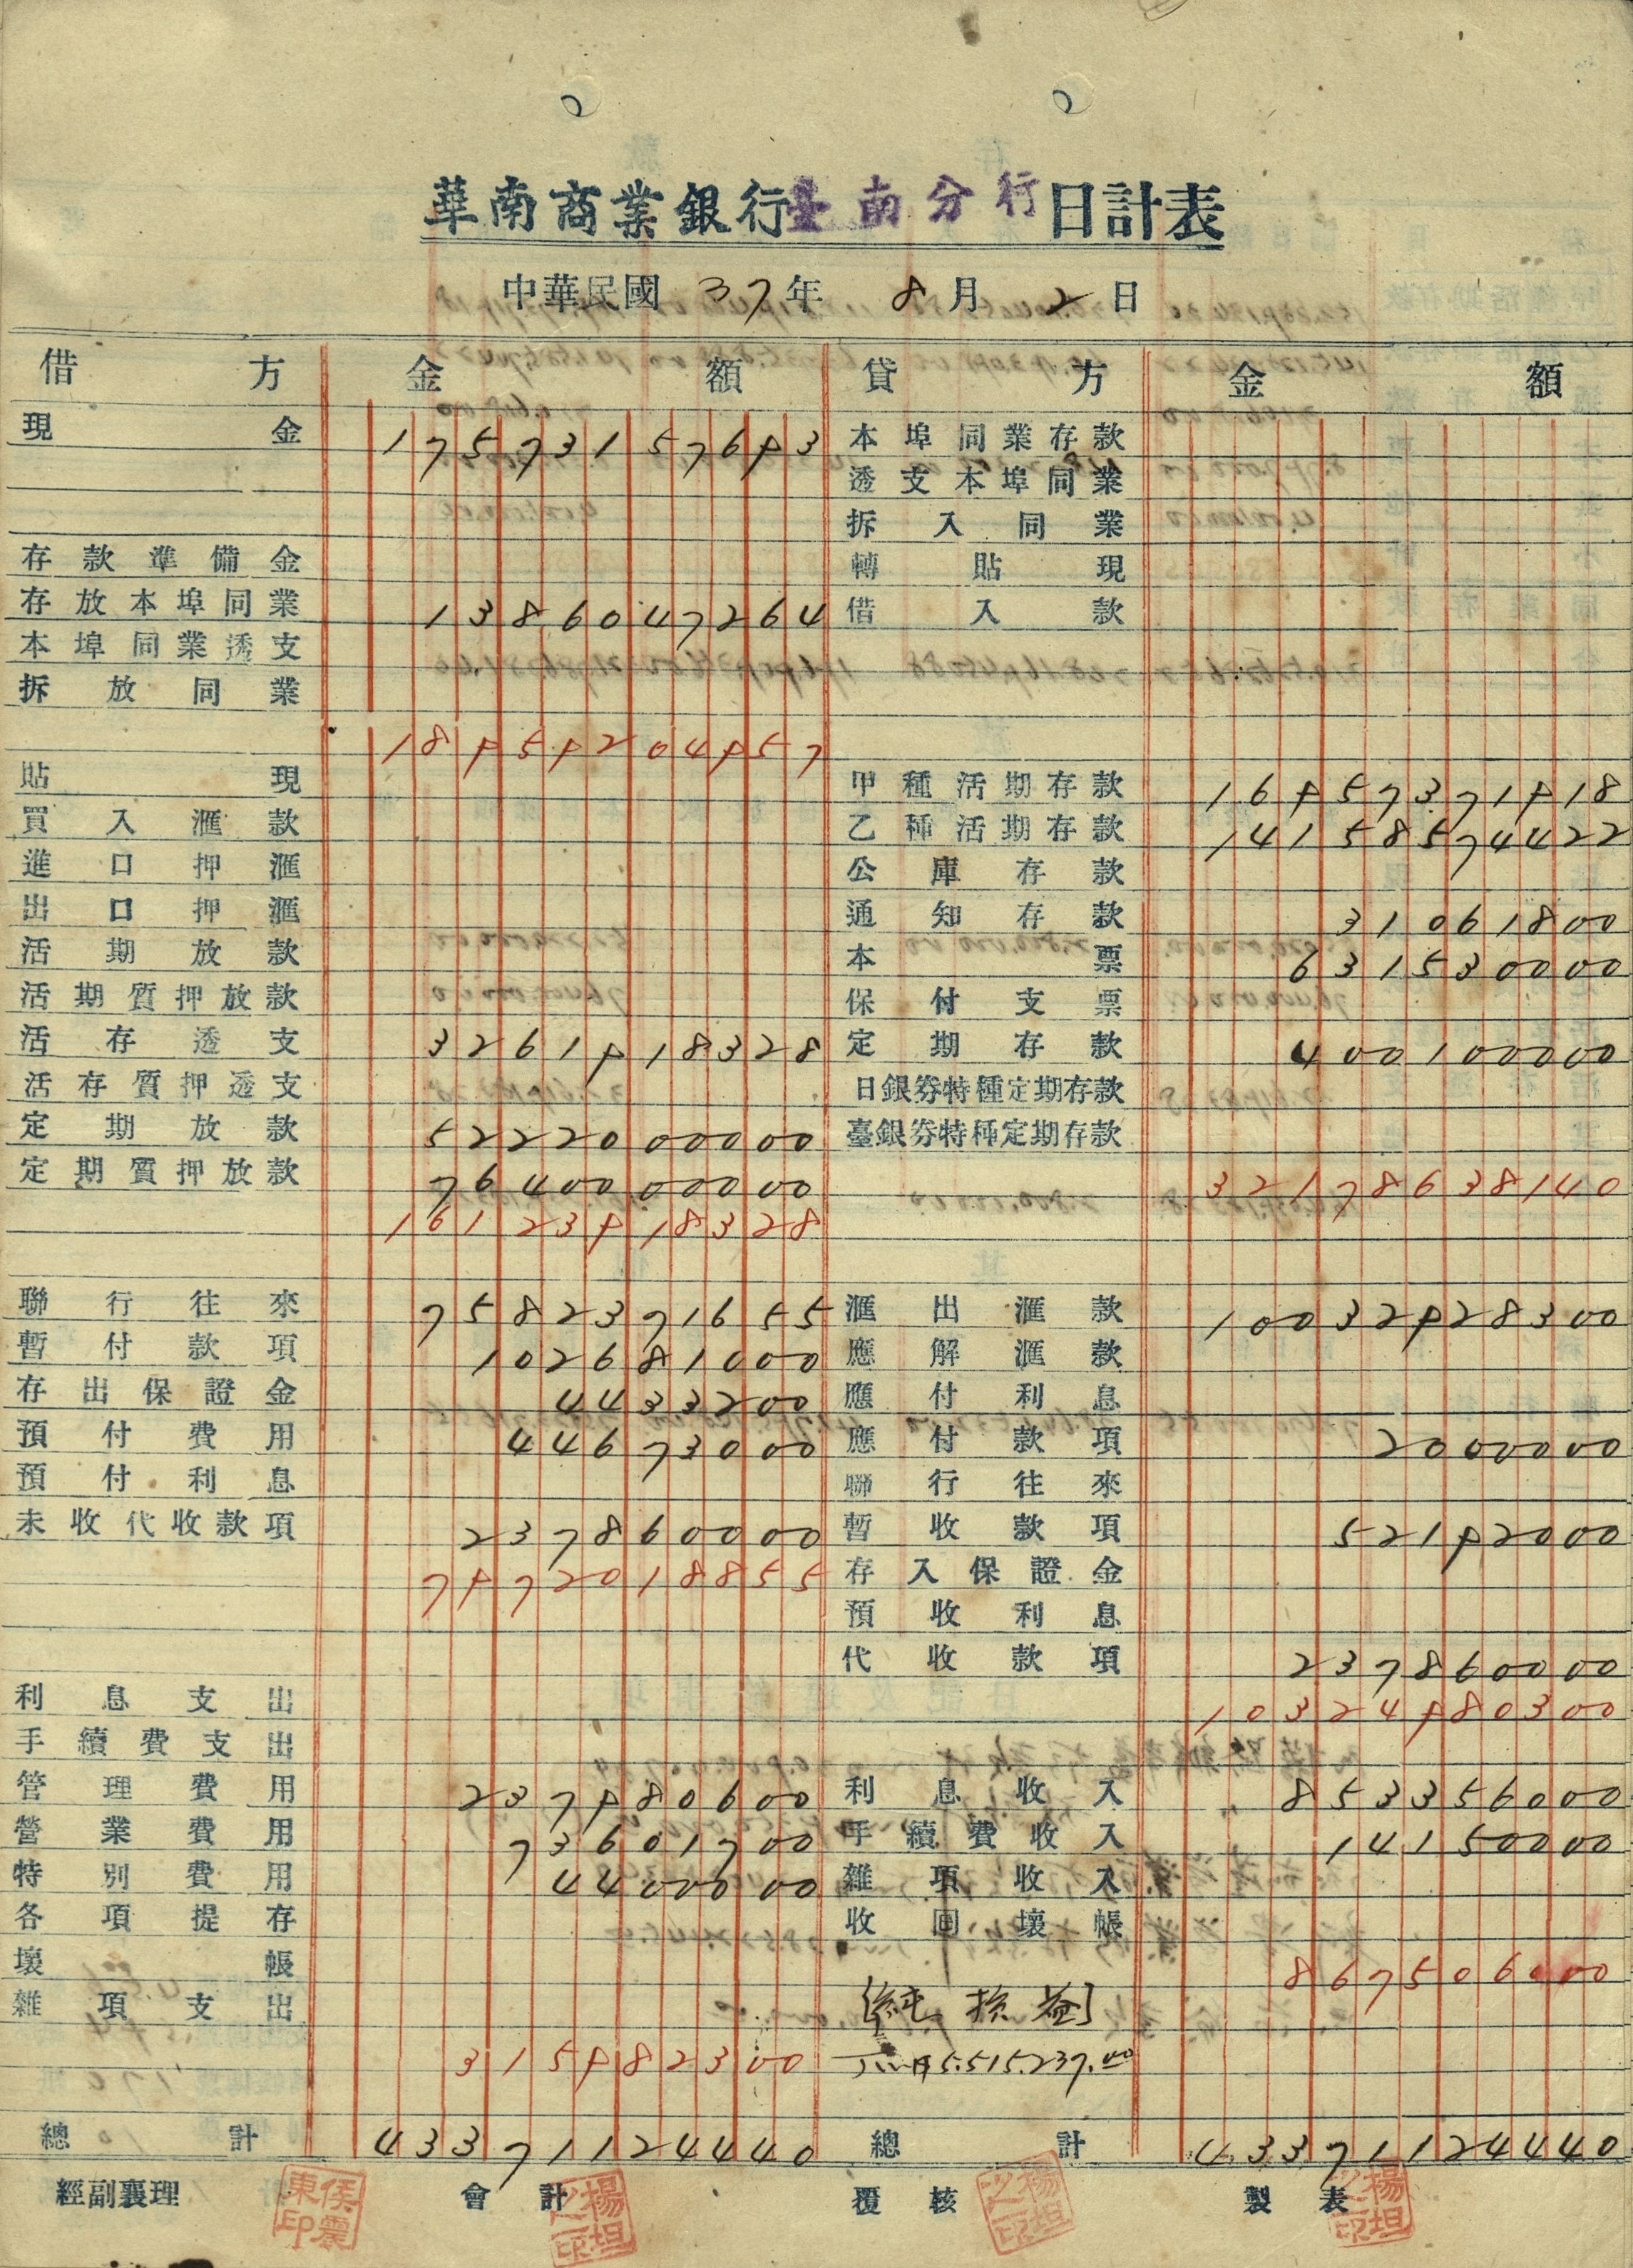 華南商業銀行臺南分行日計表
中華民國 37年 8月 2日
借方 金額 貸方 金額
現金 17573157693 本埠同業存款
透支本埠同業
拆入同業
存款準備金 轉貼現
存放本埠同業 1386047264 借入款
本埠同業透支
拆放同業
18959204957
貼現 甲種活期存款 16957371918
買入滙款 乙種活期存款 14158574422
進口押滙 公庫存款
出口押滙 通知存款 31061800
活期放款 本票 631530000
活期質押放款 保付支票
活存透支 3261918328 定期存款 400100000
活存質押透支 日銀券特種定期存款
定期放款 5222000000 臺銀券特種定期存款
定期質押放款 7640000000 32178638140
16123918328
聯行往來 7582371655 滙出滙款 10032928300
暫付款項 102681000 應解滙款
存出保證金 4433200 應付利息
預付費用 44673000 應付款項 2000000
預付利息 聯行往來
未收代收款項 237860000 暫收款項 52192000
7972018855 存入保證金
預收利息
代收款項 237860000
利息支出 10324980300
手續費支出
管理費用 237980600 利息收入 853356000
營業費用 73601700 手續費收入 14150000
特別費用 4400000 雜項收入
各項提存 收回壞帳
壞帳 867506000
雜項支出 [純損益]
315982300 5.515.237.00
總計 43371124440 總計 43371124440
經副襄理 會計 覆核 製表
侯震東印 楊坦之印 楊坦之印 楊坦之印